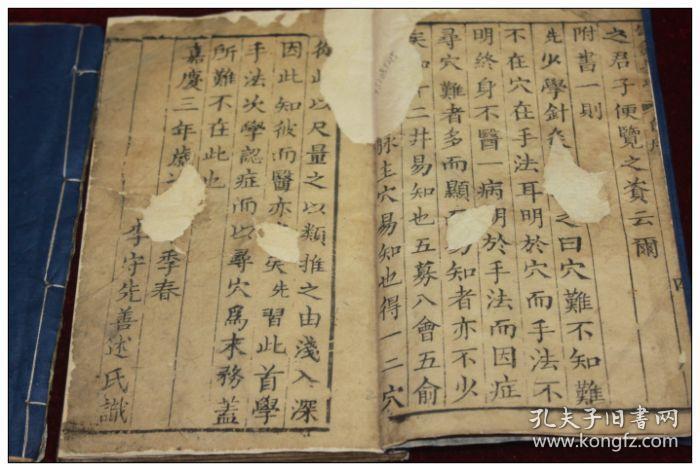 之君子便覽之資云爾
附書一則
先少學針灸之曰穴難不知難
不在穴在手法耳明於穴而手法不
明終身不醫一病明於手法而因症
尋穴難者多而顯而易知者亦不少
矣如十二井易知也五募八會五俞
脉主穴易知也得一二穴
從此以尺量之以類推之由淺入深
因此知彼而醫亦矣先習此首學
手法次學認症而以尋穴為末務蓋
所難不在此也
嘉慶三年歲季春
李守先善述氏識
孔夫子旧书网
www.kongfz.com